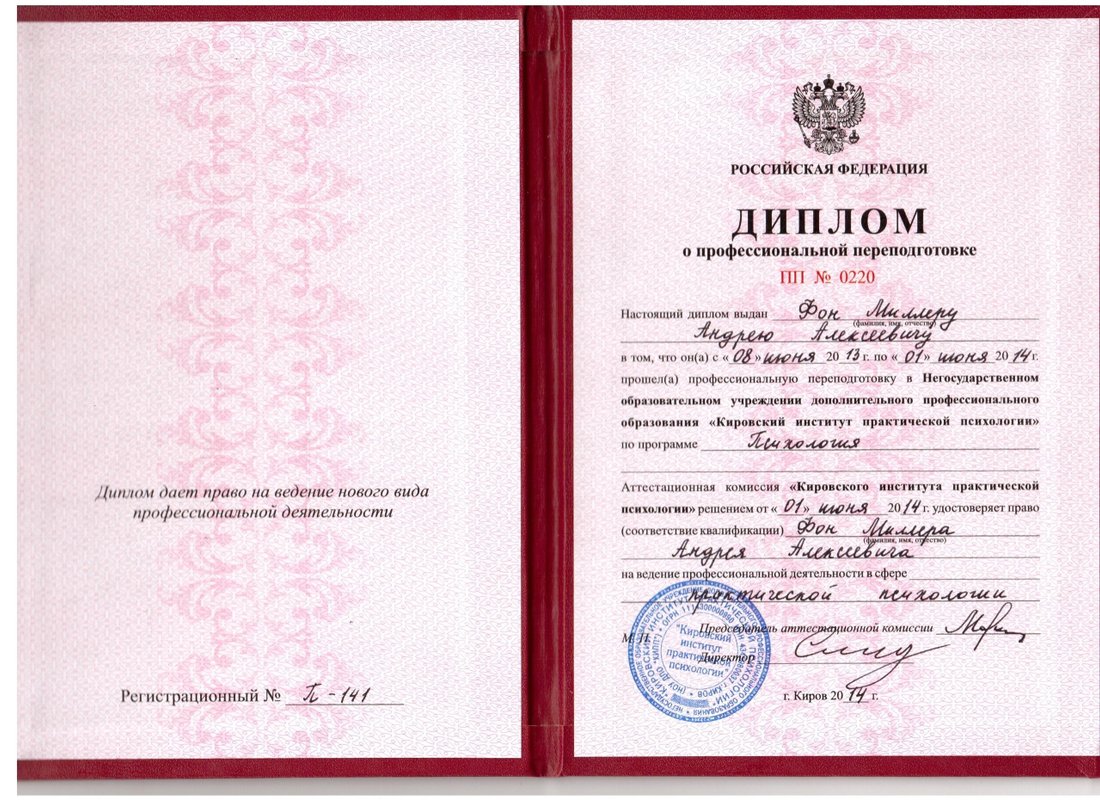 Диплом дает право на ведение нового вида
профессиональной деятельности
Регистрационный № П-141
РОССИЙСКАЯ ФЕДЕРАЦИЯ
ДИПЛОМ
о профессиональной переподготовке
ПП № 0220
Настоящий диплом выдан Фон Миллеру
(фамилия, имя, отчество)
Андрею Алексеевичу
в том, что он(а) с «08» июня 2013 г. по «01» июня 2014 г.
прошел(а) профессиональную переподготовку в Негосударственном
образовательном учреждении дополнительного профессионального
образования «Кировский институт практической психологии»
по программе Психология
Аттестационная комиссия «Кировского института практической
психологии» решением от «01» июня 2014 г. удостоверяет право
(соответствие квалификации) Фон Миллера
(фамилия, имя, отчество)
Андрея Алексеевича
на ведение профессиональной деятельности в сфере
практической психологии
Председатель аттестационной комиссии
М. П.
Директор
"Кировский
институт
практической
психологии"
г. Киров 2014 г.